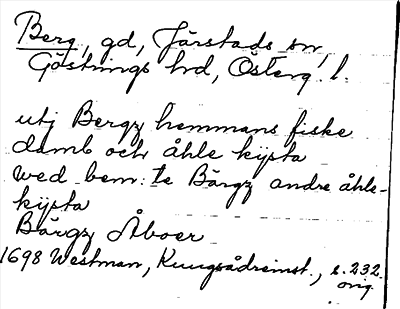 Berg, gd, Järstads sn,
Göstrings hd, Österg. l.
utj Bergz hemmans fiske
damb och åhle kijsta
wed bem:te Bärgz andre åhle-
kijsta
Bärgz Åboer
1698 Westman, Kungsådreinst., s. 232.
orig.